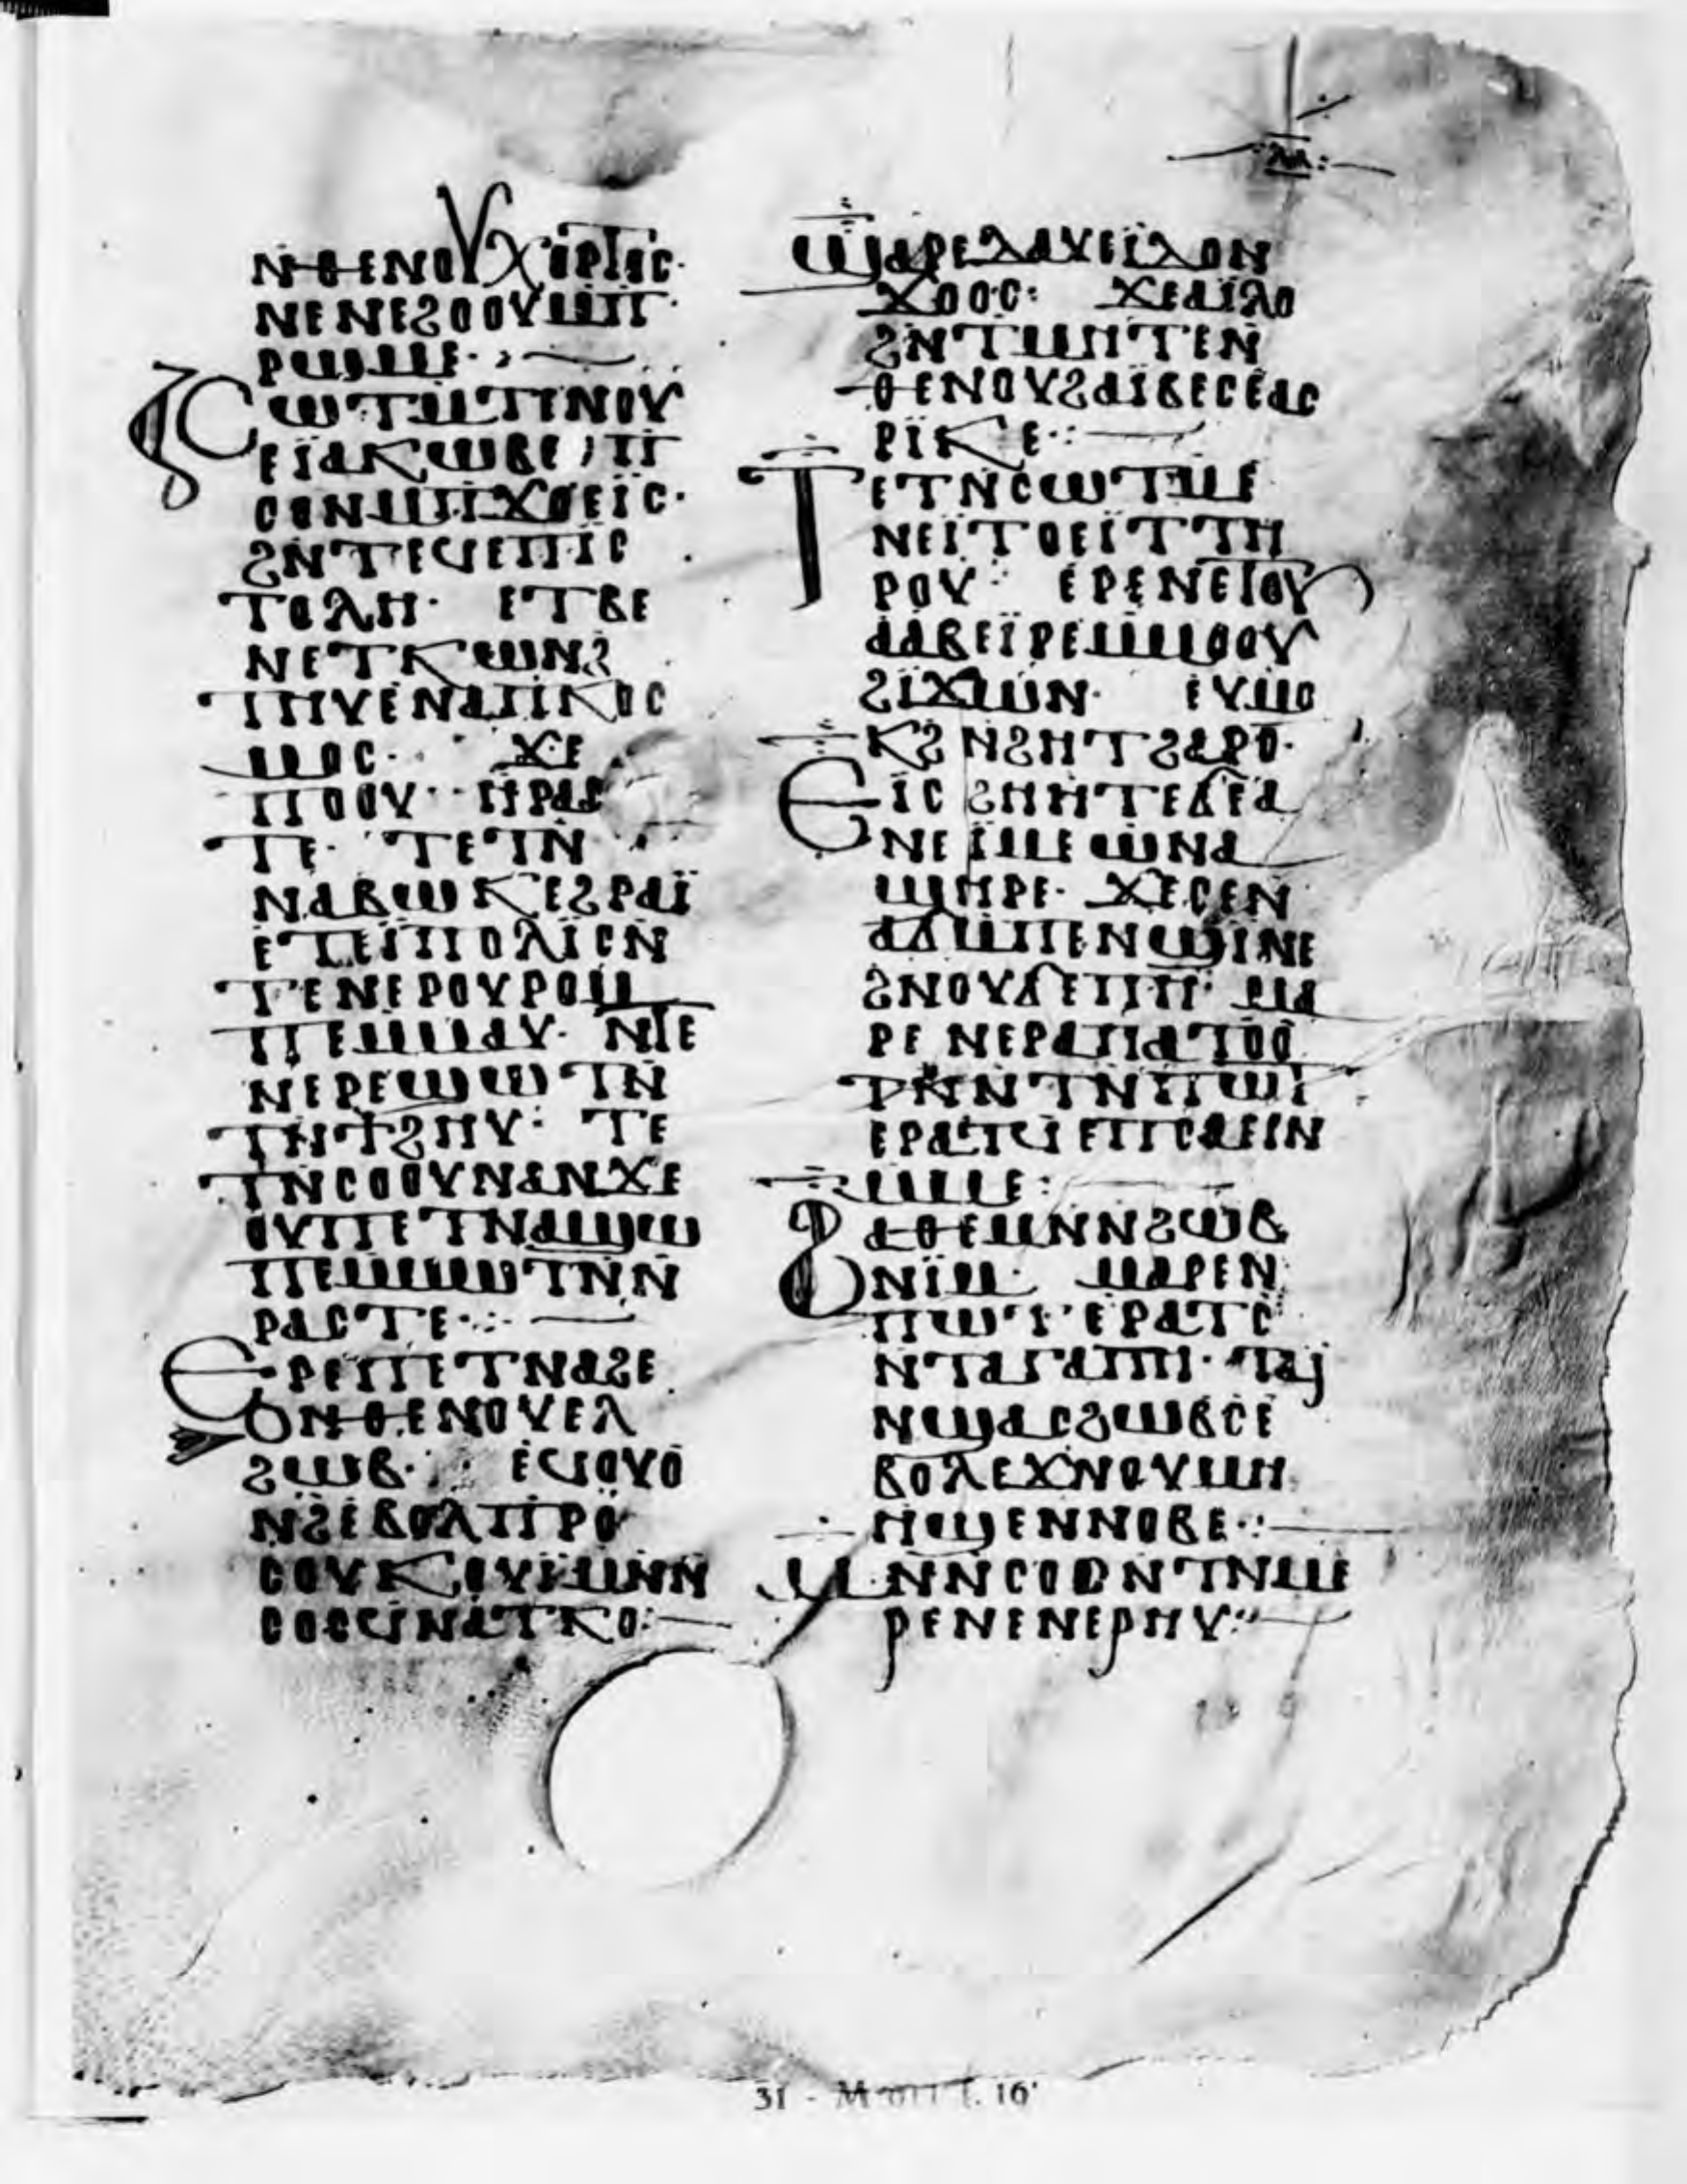 ⲗⲁ
ⲛⲑⲉⲛⲟⲩⲭⲟⲣⲧⲟⲥ·
ⲛⲉⲛⲉϩⲟⲟⲩⲙⲡ
ⲣⲱⲙⲉ·
ⲥⲱⲧⲙⲧⲓⲛⲟⲩ
ⲉⲓ̈ⲁⲕⲱⲃⲉ ⲡ
ⲥⲟⲛⲙⲡϫⲟⲉⲓⲥ·
ϩⲛⲧⲉϥⲉⲡⲓⲥ
ⲧⲟⲗⲏ· ⲉⲧⲃⲉ
ⲛⲉⲧⲕⲱⲛϩ
ⲧⲏⲩⲉⲛⲁⲡⲓⲕⲟⲥ
ⲙⲟⲥ· ϫⲉ
ⲡⲟⲟⲩ· ⲏⲣⲁⲥ
ⲧⲉ· ⲧⲉⲧⲛ
ⲛⲁⲃⲱⲕⲉϩⲣⲁⲓ̈
ⲉⲧⲉⲓ̈ⲡⲟⲗⲓ̈ⲥⲛ
ⲧⲉⲛⲉⲣⲟⲩⲣⲟⲙ
ⲡⲉⲙⲙⲁⲩ· ⲛⲧⲉ
ⲛⲉⲣⲉϣⲱⲧⲛ
ⲧⲛϯϩⲏⲩ· ⲧⲉ
ⲧⲛⲥⲟⲟⲩⲛⲁⲛϫⲉ
ⲟⲩⲡⲉⲧⲛⲁϣⲱ
ⲡⲉⲙⲙⲱⲧⲛⲛ
ⲣⲁⲥⲧⲉ·
ⲉⲣⲉⲡⲉⲧⲛⲁϩⲉ
ⲟⲛⲑⲉⲛⲟⲩⲉⲗ
ϩⲱⲃ· ⲉϥⲟⲩⲟ
ⲛϩⲉⲃⲟⲗⲡⲣⲟ
ⲥⲟⲩⲕⲟⲩⲓ̈ⲙⲛⲛ
ⲥⲱⲥϥⲛⲁⲧⲁⲕⲟ·
ϣⲁⲣⲉⲗⲁⲩⲉⲓ̈ⲇⲟⲛ
ϫⲟⲟⲥ· ϫⲉⲁⲓ̈ⲗⲟ
ϩⲛⲧⲙⲏⲧⲉⲛ
ⲑⲉⲛⲟⲩϩⲁⲓ̈ⲃⲉⲥⲉⲁⲥ
ⲣⲓ̈ⲕⲉ·
ⲧⲉⲧⲛⲥⲱⲧⲙⲉ
ⲛⲉⲓ̈ⲧⲟⲉⲓ̈ⲧⲧⲏ
ⲣⲟⲩ· ⲉⲣⲉⲛⲉⲓⲟⲩ
ⲇⲁⲃⲉⲓ̈ⲣⲉⲙⲙⲟⲟⲩ
ϩⲓ̈ϫⲱⲛ· ⲉⲩⲙⲟ
ⲕϩ ⲛϩⲏⲧϩⲁⲣⲟ·
ⲉⲓ̈ⲥ ϩⲏⲏⲧⲉⲁⲅⲉⲁ
ⲛⲉⲓ̈ⲙⲉⲱⲛⲁ
ϣⲏⲣⲉ· ϫⲉⲥⲉⲛ
ⲁϭⲙⲡⲉⲛϣⲓ̈ⲛⲉ
ϩⲛⲟⲩϭⲉⲡⲏ· ⲙⲁ
ⲣⲉ ⲛⲉⲣⲁⲡⲁⲧⲟⲟ
ⲧⲕⲛ ⲧⲛⲡⲱⲧ
ⲉⲣⲁⲧϥ ⲉⲡⲥⲁⲉⲓⲛ
ⲙⲙⲉ:
ϩⲁⲑⲉⲙⲛⲛϩⲱⲃ
ⲛⲓ̈ⲙ· ⲙⲁⲣⲉⲛ
ⲡⲱⲧ ⲉⲣⲁⲧⲥ
ⲛⲧⲁⲅⲁⲡⲏ· ⲧⲁⲓ
ⲛϣⲁⲥϩⲱⲃⲥⲉ
ⲃⲟⲗⲉϫⲛⲟⲩⲙⲏ
ⲏϣⲉⲛⲛⲟⲃⲉ·
ⲙⲛⲛⲥⲱⲛ ⲧⲛⲙⲉ
ⲣⲉⲛⲉⲛⲉⲣⲏⲩ·
31 - M 611 f. 16ʳ